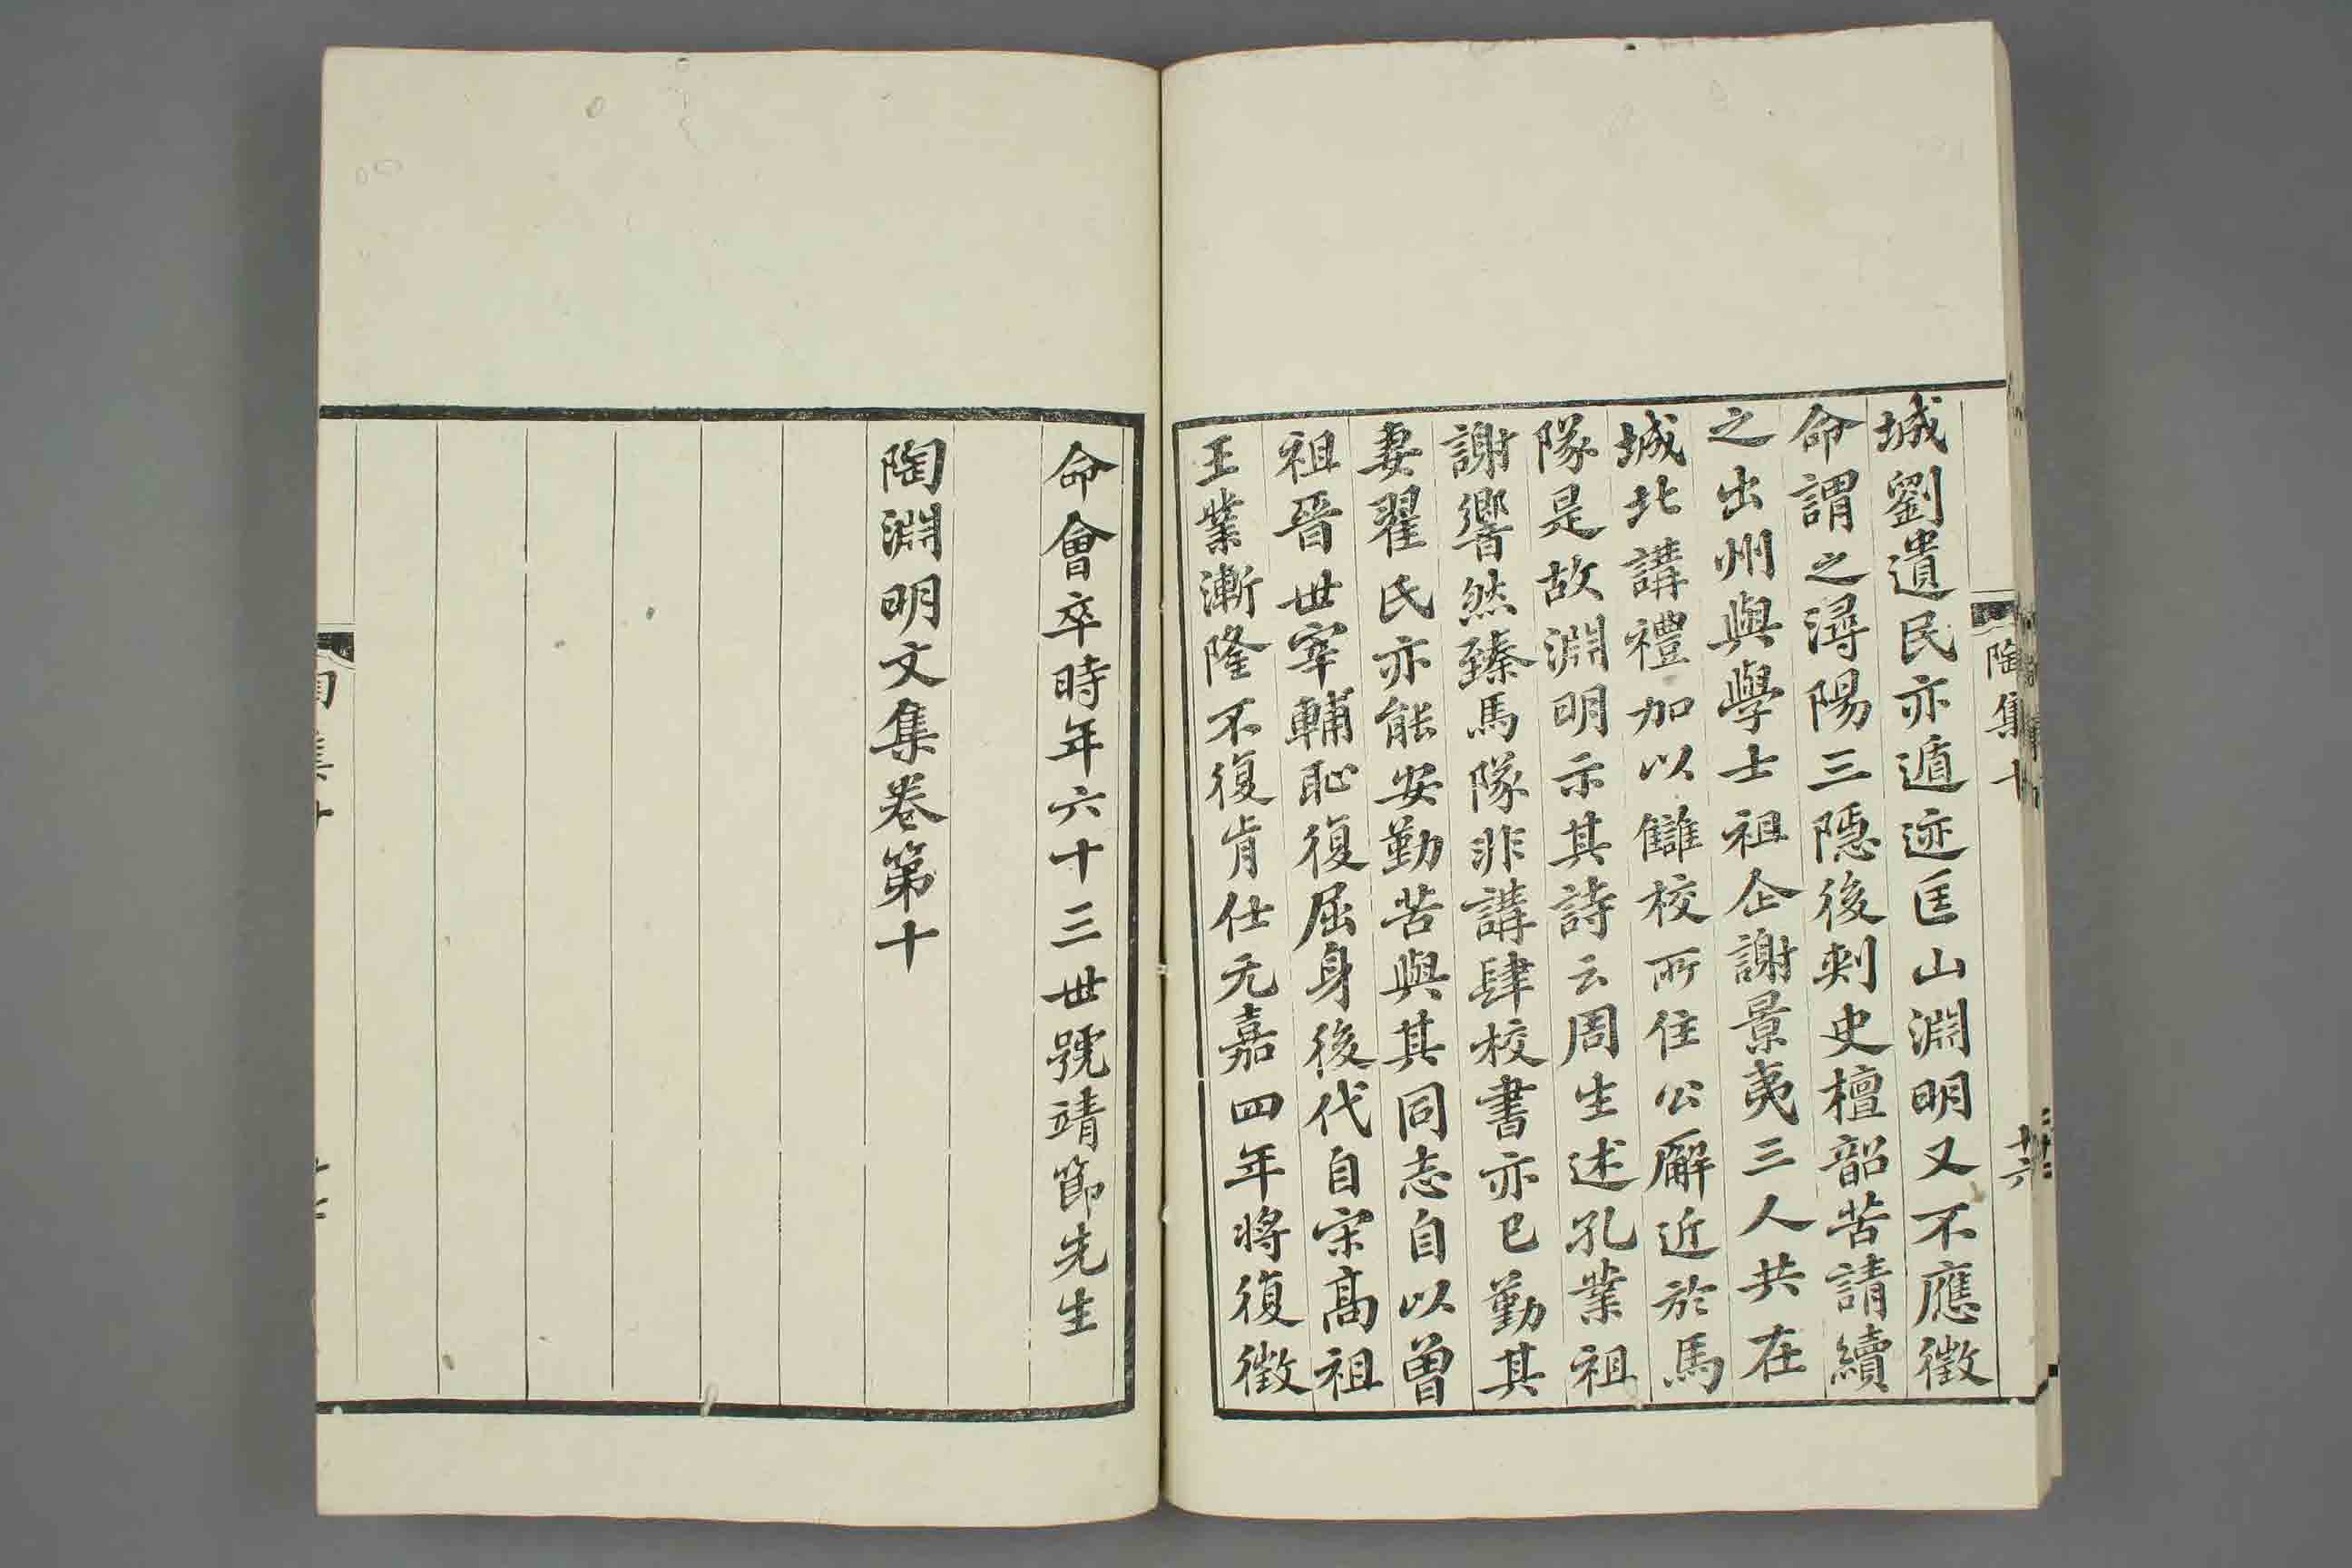 陶集十
廿六
城劉遺民亦遁迹匡山淵明又不應徵
命謂之潯陽三隱後刺史檀韶苦請續
之出州與學士祖企謝景夷三人共在
城北講禮加以讎校所住公廨近於馬
隊是故淵明示其詩云周生述孔業祖
謝響然臻馬隊非講肆校書亦已勤其
妻翟氏亦能安勤苦與其同志自以曾
祖晉世宰輔恥復屈身後代自宋高祖
王業漸隆不復肯仕元嘉四年將復徵
命會卒時年六十三世號靖節先生
陶淵明文集卷第十